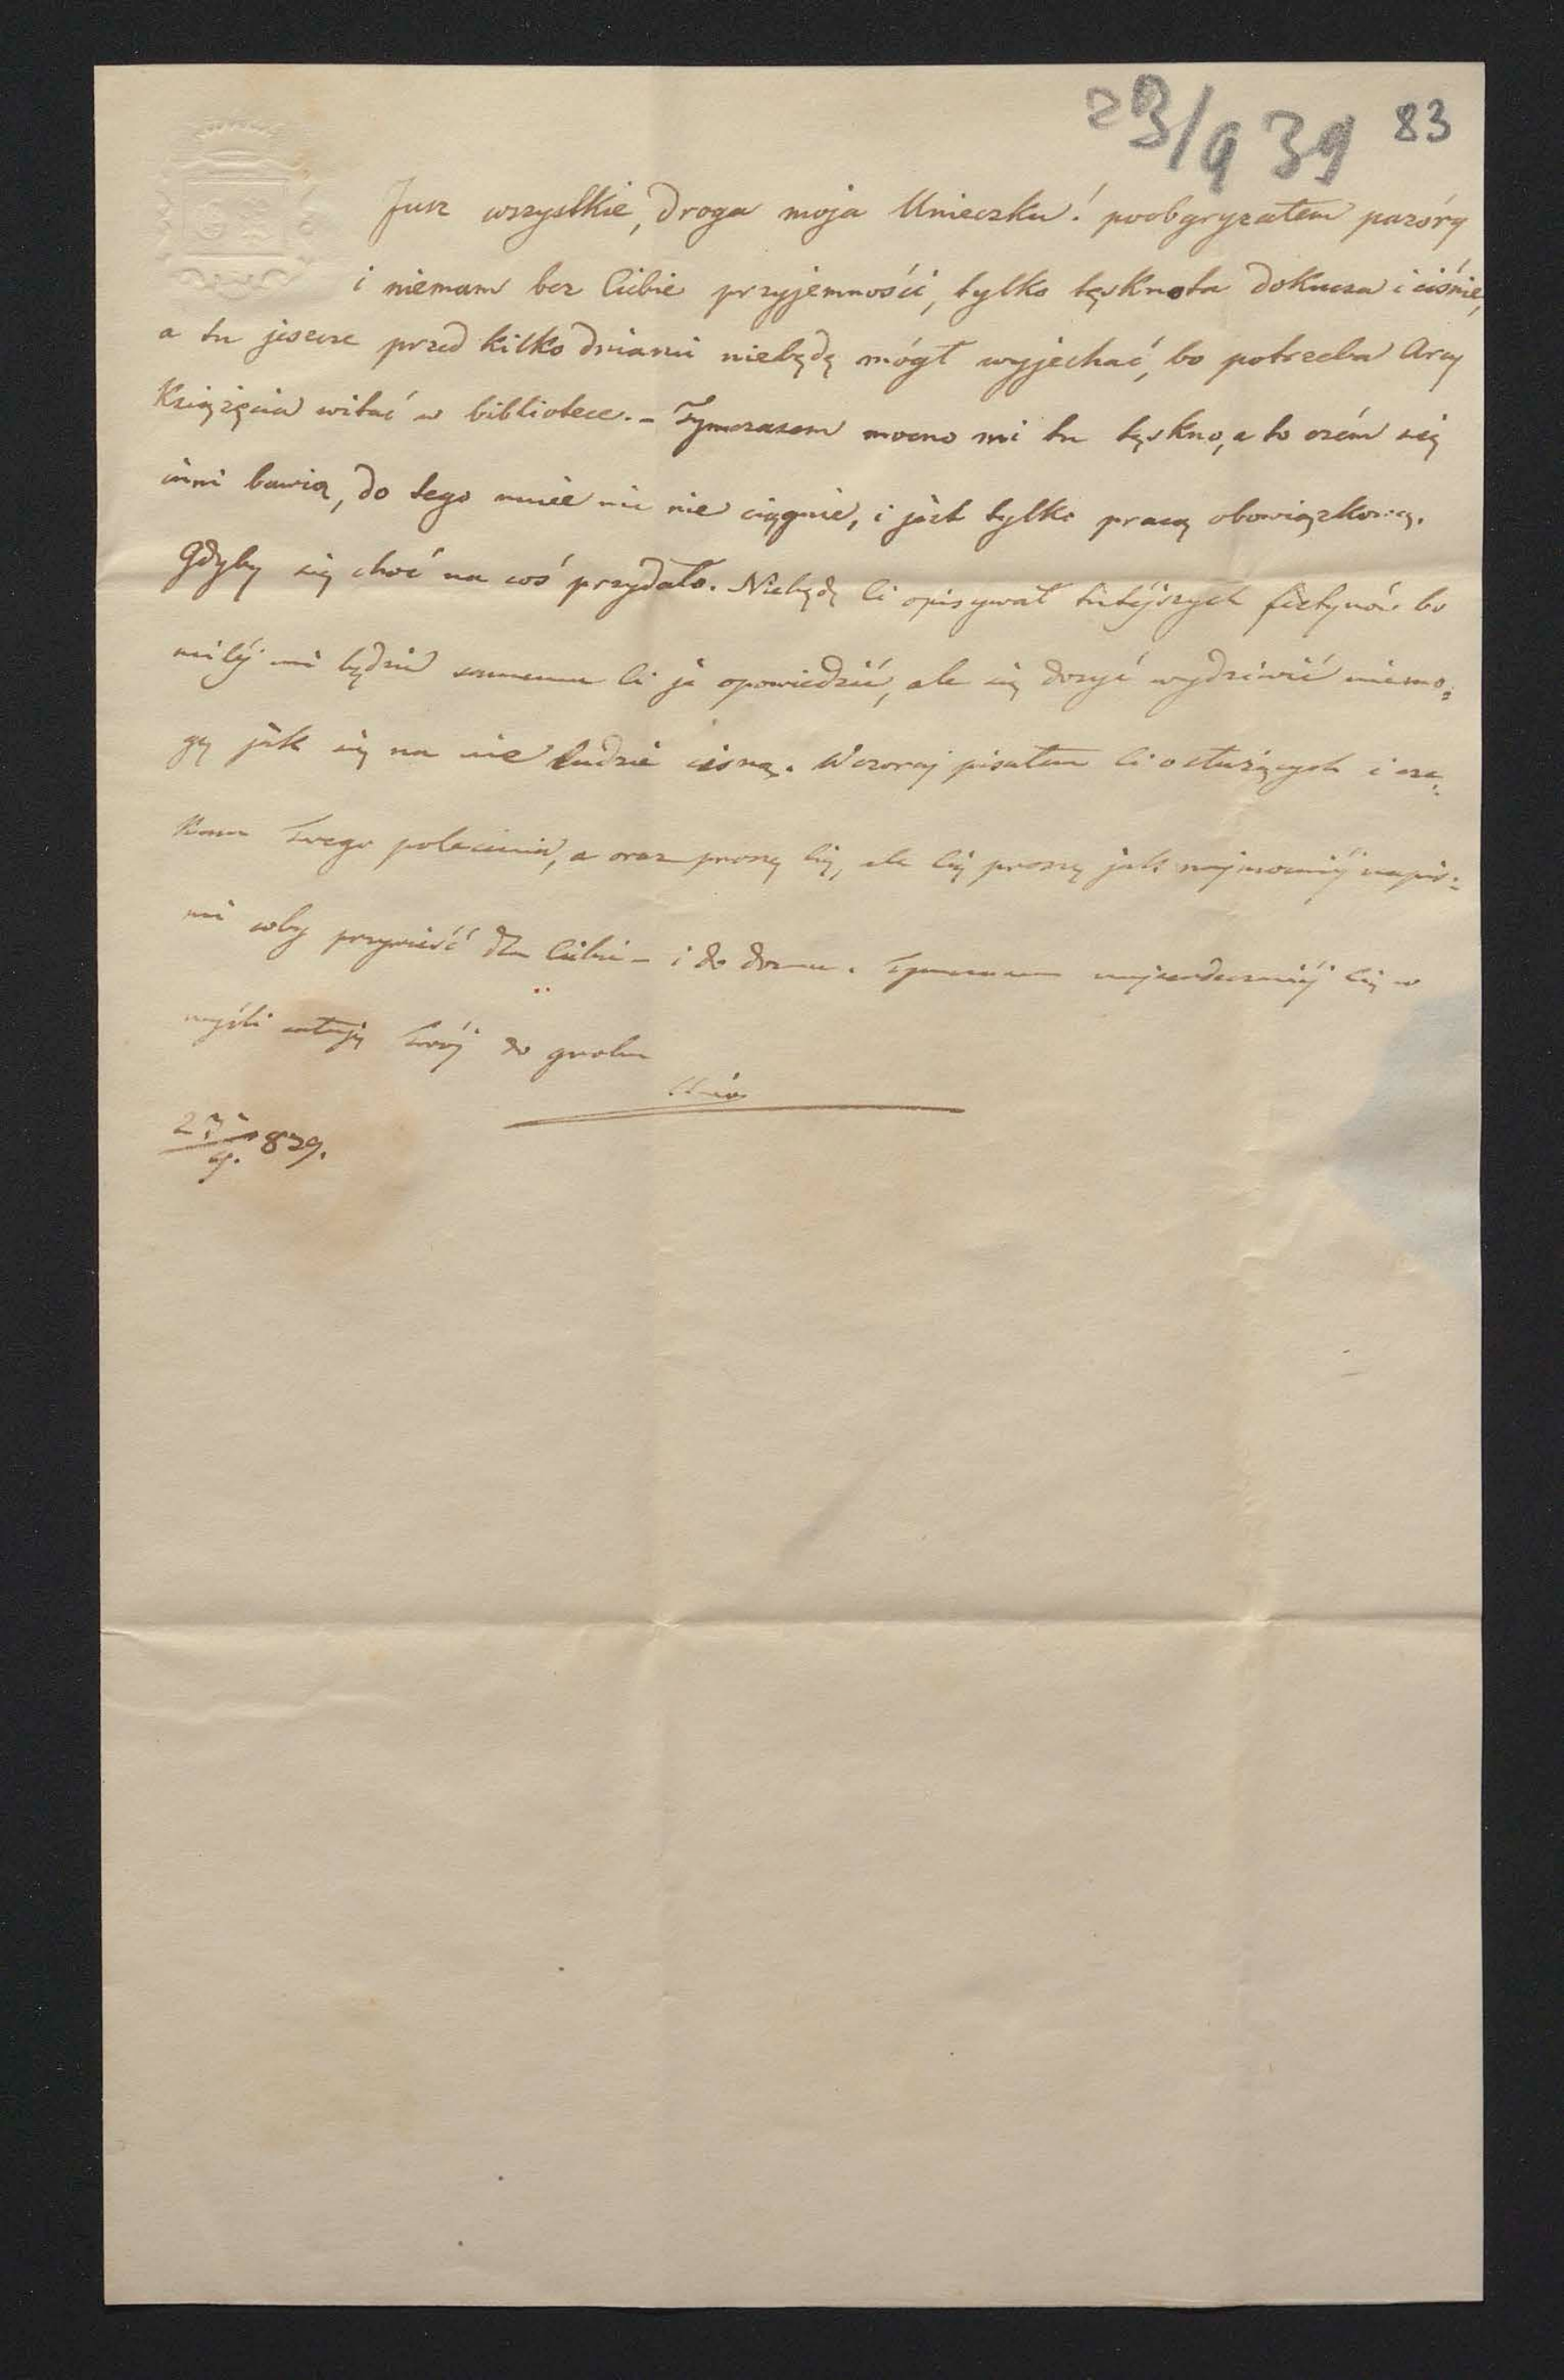 23/9 39 83
Jusz wszystkie, droga moja Unieczku! poobgryzałem pazóry
i niemam bez Ciebie przyjemności, tylko tęsknota dokucza i ciśnie,
a tu jeszcze przed kilko dniami niebędę mógł wyjechać, bo potrzeba Arcy
Księżęcia witać w bibliotece. – Tymczasem mocno mi tu tęskno, a to czém się
inni bawią, do tego mnie nic nie ciągnie, i jest tylko pracą obowiązkową.
Gdyby się choć na coś przydało. Niebędę Ci opisywał tutéjszych festynów bo
miléj mi będzie samemu Ci je opowiedzić, ale się dosyć wydziwić niemo=
gę jak się na nie ludzie cisną. Wczoraj pisałem Ci o służących i cze=
kam Twego polecenia, a oraz proszę Cię, ale Cię proszę jak najmocniéj napis=
mi coby przywieść dla Ciebie – i do domu. Tymczasem najserdeczniéj Cię w
myśli całuję Twój do grobu
23/9. 839.